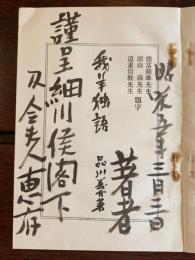 昭和五年三月三日
著者
徳富蘇峰先生
頭山満先生
道重信教先生
題字
我羊独語
品川義介著
謹呈細川侯閣下
及令夫人恵存